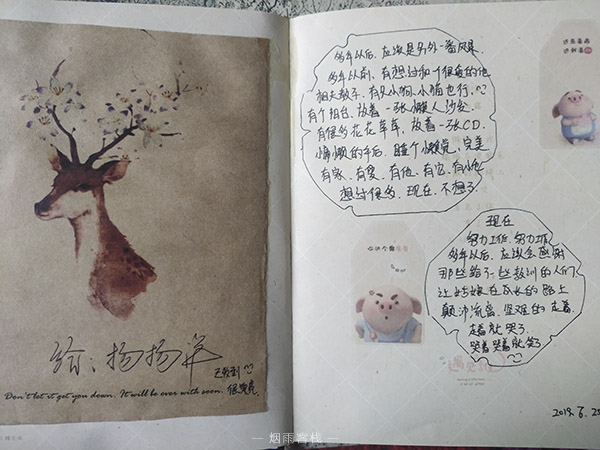 给：扬扬
已收到
很漂亮
Don't let it get you down. It will be over with soon.
多年以后，应该是另外一番风景
多年以前，有想过和一个很爱的他
相夫教子，有只小狗、小猫也行，
有个阳台，放着一张懒人沙发
有很多花花草草，放着一张CD，
慵懒的午后，睡个懒觉，完美
有家、有爱、有他、有它、有小他
想过很多，现在，不想了
现在
努力工作，努力工作
多年以后，应该会感谢
那些给了一些教训的人们
让姑娘在成长的路上
颠沛流离，坚难的走着，
走着就哭了
哭着哭着就笑了
心伤个
遇见
2019.6.25
— 烟雨客栈 —